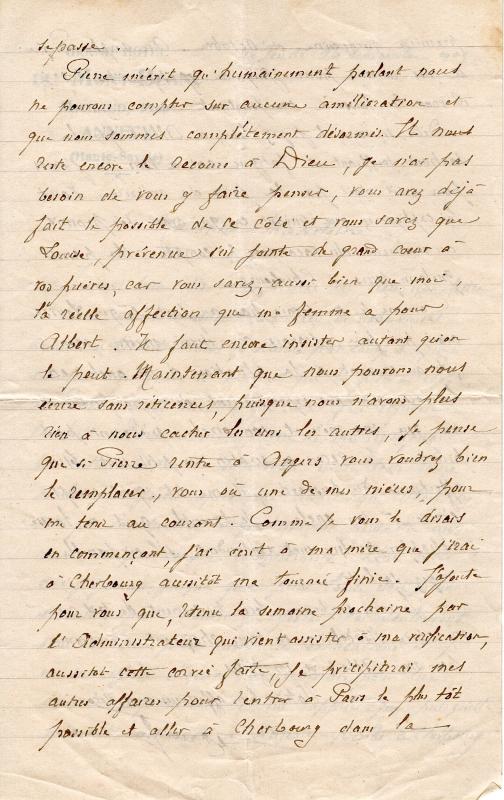 se passe.
Pierre m'écrit qu'humainement parlant nous
ne pouvons compter sur aucune amélioration et
que nous sommes complétement désarmés. Il nous
reste encore le recours à Dieu, je n'ai pas
besoin de vous y faire penser, vous avez déjà
fait le possible de ce côté et vous savez que
Louise, prévenue s'est jointe de grand coeur à
vos prières, car vous savez, aussi bien que moi,
la réelle affection que ma femme a pour
Albert. Il faut encore insister autant qu'on
le peut. Maintenant que nous pouvons nous
écrire sans réticences, puisque nous n'avons plus
rien à nous cacher les uns les autres, je pense
que si Pierre rentre à Angers vous voudrez bien
le remplacer, vous où une de mes nièces, pour
me tenir au courant. Comme je vous le disais
en commençant, j'ai écrit à ma mère que j'irai
à Cherbourg aussitôt ma tournée finie. J'ajoute
pour vous que, retenu la semaine prochaine par
l'Administrateur qui vient assister à ma vérification,
aussitôt cette corvée faite, je précipiterai mes
autres affaires pour rentrer à Paris le plus tôt
possible et aller à Cherbourg dans la